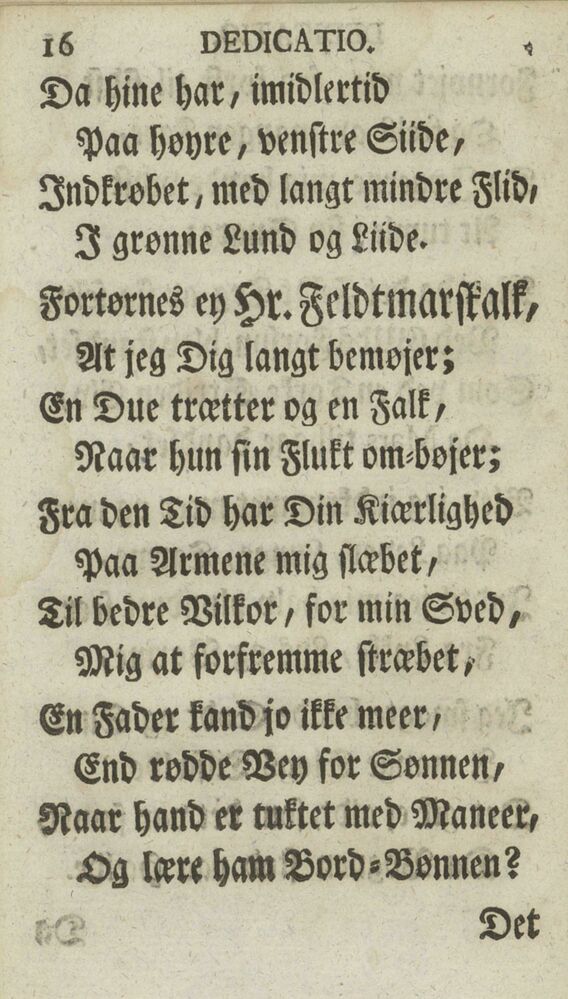 16 DEDICATIO.
Da hine har, imidlertid
Paa høyre, venstre Siide,
Indkrøbet, med langt mindre Flid,
I grønne Lund og Liide.
Fortørnes ey Hr. Feldtmarskalk,
At jeg Dig langt bemøjer;
En Due trætter og en Falk,
Naar hun sin Flukt om-bøjer;
Fra den Tid har Din Kiærlighed
Paa Armene mig slæbet,
Til bedre Vilkor, for min Sved,
Mig at forfremme stræbet,
En Fader kand jo ikke meer,
End rødde Vey for Sønnen,
Naar hand er tuktet med Maneer,
Og lære ham Bord-Bønnen?
Det